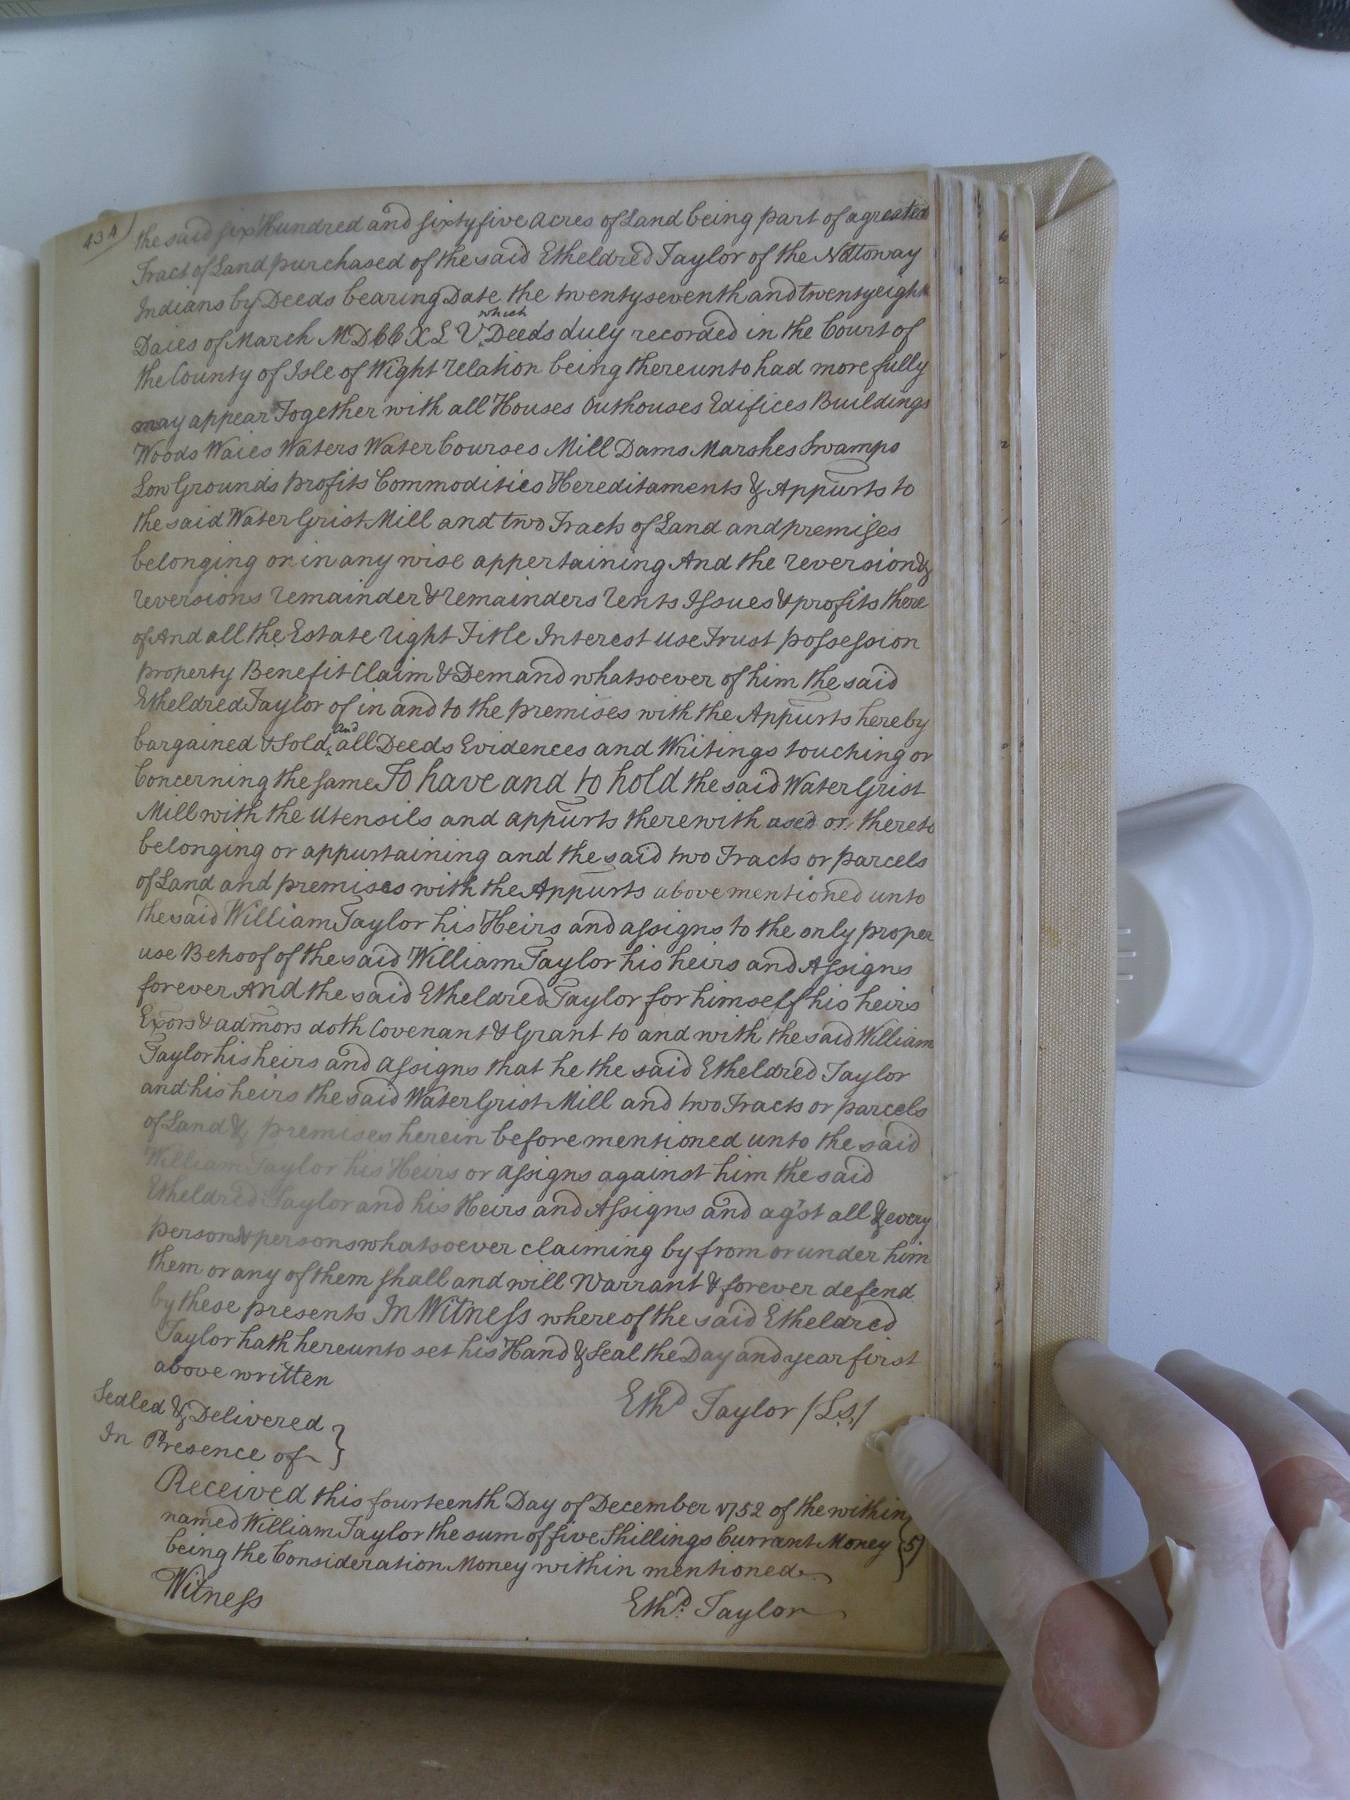 434
the said six Hundred and sixtyfive acres of Land being part of a greater
Tract of Land purchased of the said Etheldred Taylor of the Nottoway
Indians by Deeds bearing Date the twentyseventh and twentyeighth
which
Daies of March MDCCXLV. Deeds duly recorded in the Court of
the County of Isle of Wight relation being thereunto had more fully
may appear Together with all Houses Outhouses Edifices Buildings
Woods Waies Waters Water Courses Mill Dams Marshes Swamps
Low Grounds profits Commodities Hereditaments & Appurts to
the said Water Grist Mill and two Tracts of Land and premises
belonging or in any wise appertaining And the reversion &
reversions remainder & remainders rents Issues & profits there
of And all the Estate right Title Interest use Trust possession
property Benefit Claim & Demand whatsoever of him the said
Etheldred Taylor of in and to the premises with the Appurts hereby
and
bargained & Sold, all Deeds Evidences and Writings touching or
Concerning the same To have and to hold the said Water Grist
Mill with the Utensils and appurts therewith used or thereto
belonging or appurtaining and the said two Tracts or parcels
of Land and premises with the Appurts above mentioned unto
the said William Taylor his Heirs and assigns to the only proper
use Behoof of the said William Taylor his heirs and Assigns
forever And the said Etheldred Taylor for himself his heirs
Exors & admors doth Covenant & Grant to and with the said William
Taylor his heirs and assigns that he the said Etheldred Taylor
and his heirs the said Water Grist Mill and two Tracts or parcels
of Land & premises herein before mentioned unto the said
William Taylor his Heirs or assigns against him the said
Etheldred Taylor and his Heirs and Assigns and ag'st all & every
person & persons whatsoever claiming by from or under him
them or any of them shall and will Warrant & forever defend
by these presents In Witness whereof the said Etheldred
Taylor hath hereunto set his Hand & Seal the Day and year first
above written
Ethd Taylor (L.S.)
Sealed & Delivered
In Presence of }
Received this fourteenth Day of December 1752 of the within
named William Taylor the sum of five Shillings Currant Money } 5)
being the Consideration Money within mentioned
Witness
Ethd. Taylor